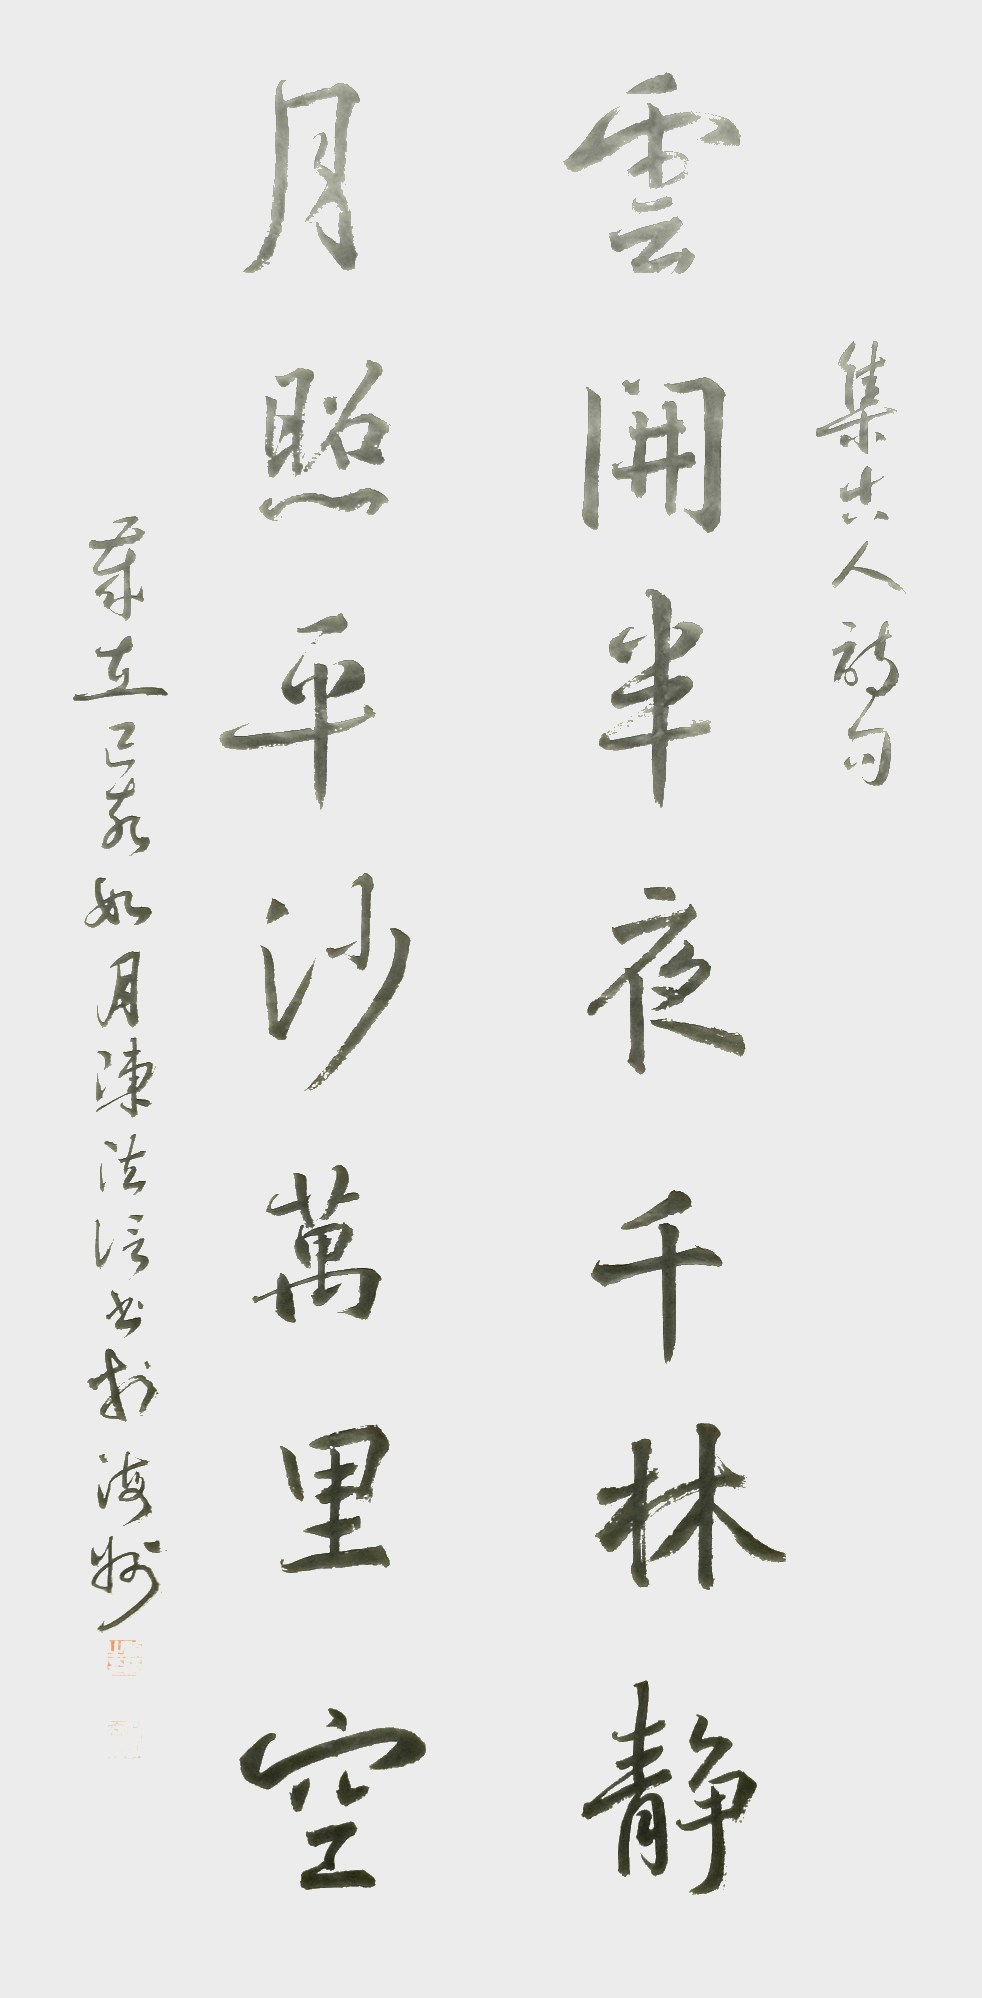 集古人詩句
雲開半夜千林静
月照平沙萬里空
歲在己亥如月陳法信書於海州